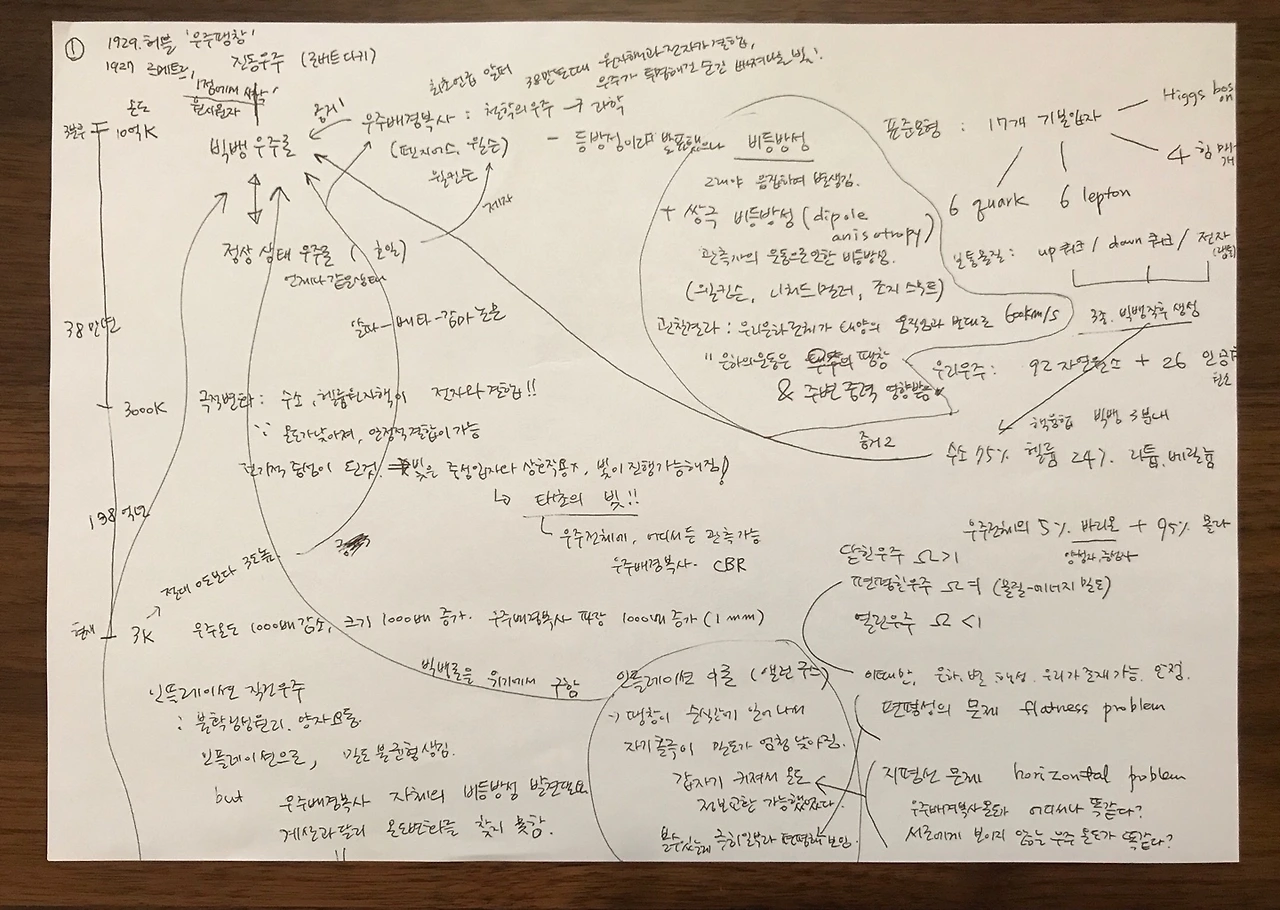 ①
1929. 허블 '우주팽창'
1927 르메트르,
진동우주 (로버트 다키)
'1점에서 시작'
원시원자
온도
3분후
10억K
빅뱅 우주론
증거1
최초언급 알퍼
38만년때 원자핵과 전자가 결합,
우주가 투명해진 순간 빠져나온 빛!
우주배경복사 : 철학의 우주 → 과학
(펜지어스, 윌슨)
윌킨슨
제자
정상 상태 우주론 ( 호일)
언제나 같은 상태
알파-베타-감마 논문
- 등방성이라 발표했으나 비등방성
그래야 응집하여 별생김.
+ 쌍극 비등방성 (dipole
anisotropy)
관측자의 운동으로 인한 비등방성.
(윌킨슨, 리처드 뮬러, 조지 스무트)
관찰결과 : 우리은하전체가 태양의 움직임과 반대로 600km/s
" 은하의 운동은 우주의 팽창
& 주변 중력 영향받음.
표준모형 : 17개 기본입자
Higgs boson
4 힘 매개
6 quark
6 lepton
보통물질 : up쿼크 / down 쿼크 / 전자
3종, 빅뱅직후 생성
우리우주 : 92 자연원소 + 26 인공
원소
핵융합 빅뱅 3분내
수소 75% 헬륨 24% 리튬, 베릴륨
증거 2
38만년
3000K
극적변화 : 수소, 헬륨원자핵이 전자와 결합!!
∵ 온도가 낮아져, 안정적 결합이 가능
전기적 중성이 된것. 빛은 중성입자와 상호작용x, 빛이 진행가능해짐!
↳ 태초의 빛!!
우주전체에, 어디서든 관측가능
우주배경복사. CBR
138억년
절대 0도보다 3도높음.
현재
3K
우주온도 1000배 감소, 크기 1000배 증가. 우주배경복사 파장 1000배 증가 (1mm)
우주전체의 5% 바리온 + 95% 몰라
양성자, 중성자
닫힌우주 Ω>1
편평한우주 Ω=1 (물질-에너지 밀도)
열린우주 Ω<1
이때만, 은하. 별. 행성. 우리가 존재 가능. 안정.
편평성의 문제 flatness problem
지평선 문제 horizontal problem
우주배경복사온도 어디서나 똑같다?
서로에게 보이지 않는 우주 온도가 똑같다?
빅뱅론을 위기에서 구함
인플레이션 이론 (앨런 구스)
→ 팽창이 순식간에 일어나며
자기홀극이 밀도가 엄청 낮아짐.
갑자기 커져서 온도
정보교환 가능했었다.
볼수있는게 극히일부라 편평해 보임.
인플레이션 직전우주
: 불확정성원리. 양자요동.
인플레이션으로, 밀도 불균형 생김.
but 우주배경복사 자체의 비등방성 발견안돼
계산과 달리 온도변화를 찾지 못함.